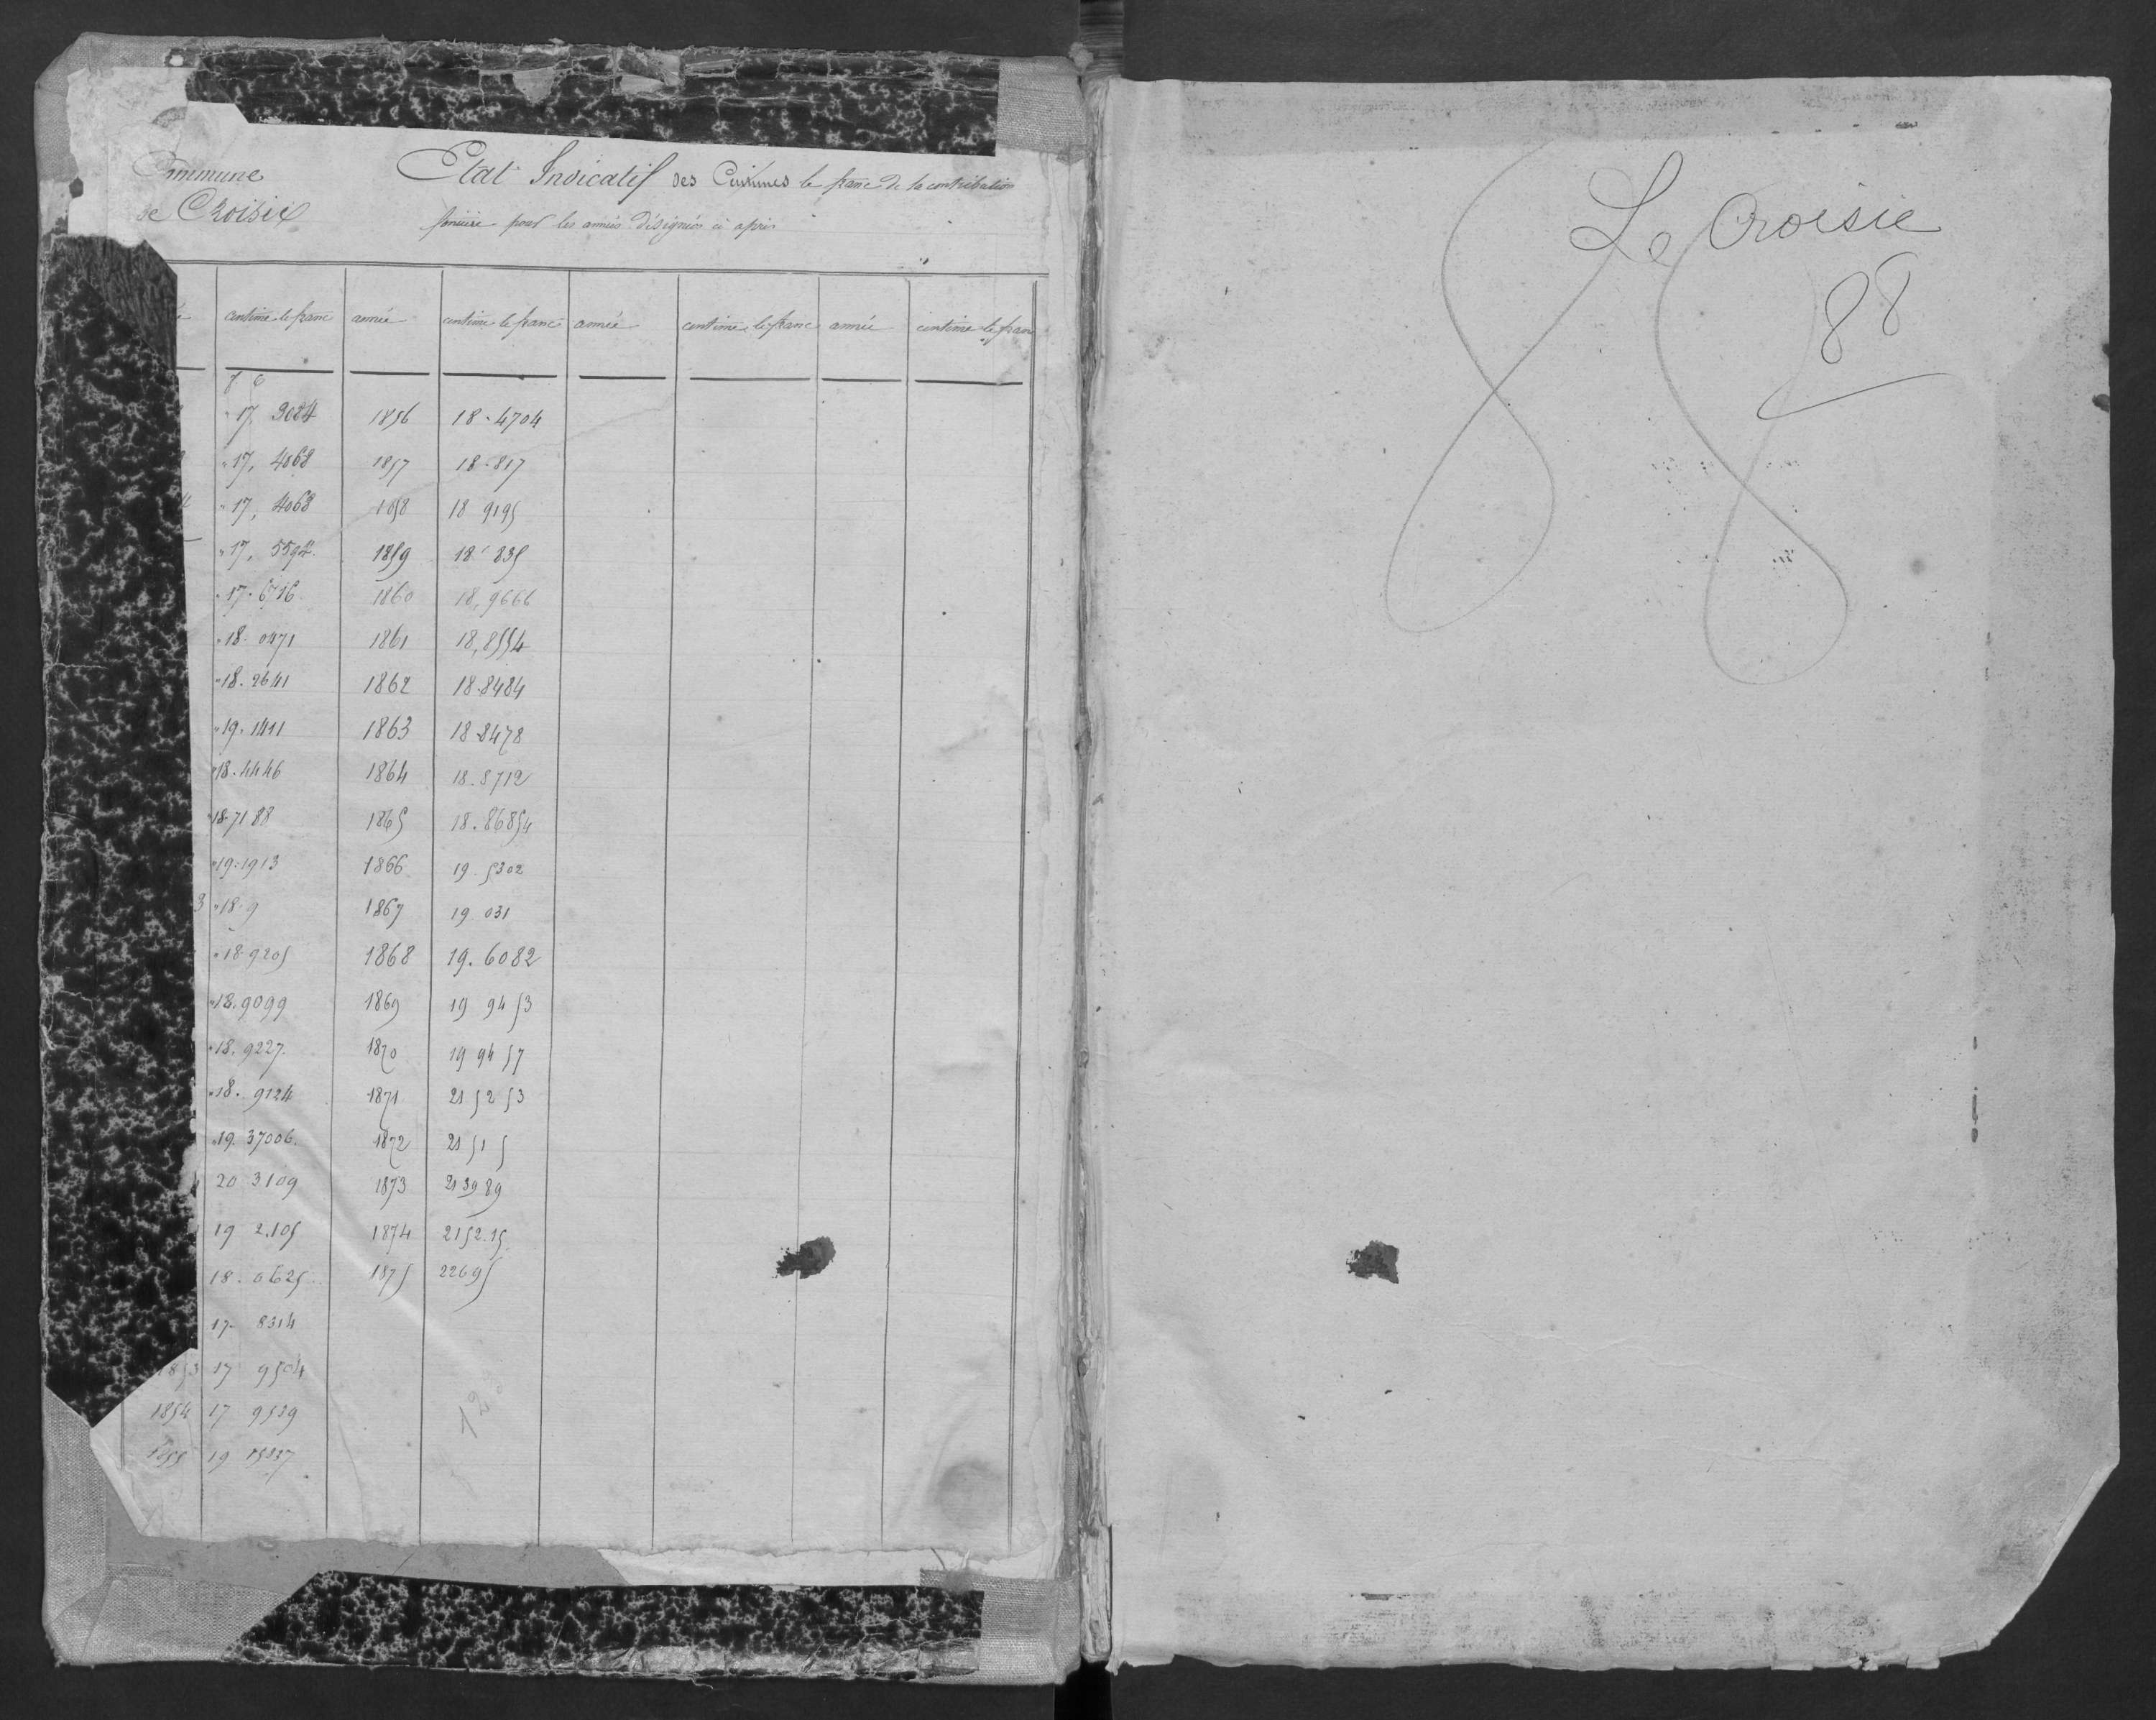 Commune Etat Indicatif des Centimes le franc de la contribution
de Croisic foncière pour les années désignées ci après
centime le franc année centime le franc année centime le franc année centime le franc
f c
17, 3084 1856 18-4704
17, 4068 1857 18-817
17, 4068 1858 18 9195
17, 5592 1859 18 835
17. 6716 1860 18,9666
18. 0471 1861 18,8554
18. 2641 1862 18.8484
19. 1411 1863 18 8478
18. 4446 1864 18.8712
18.7188 1865 18.86854
19.1913 1866 19.5302
3 18.9 1867 19 031
18.9205 1868 19.6082
18.9099 1869 19 94 53
18.9227 1870 19 94 57
18. 9124 1871 21 52 53
19. 37006. 1872 21 51 5
20 3109 1873 21 39 89
19 2.105 1874 2152.15
18. 0625 1875 22695
17 8314
1853 17 9504
1854 17 9539
1855 19
123
Le Croisic
88
88